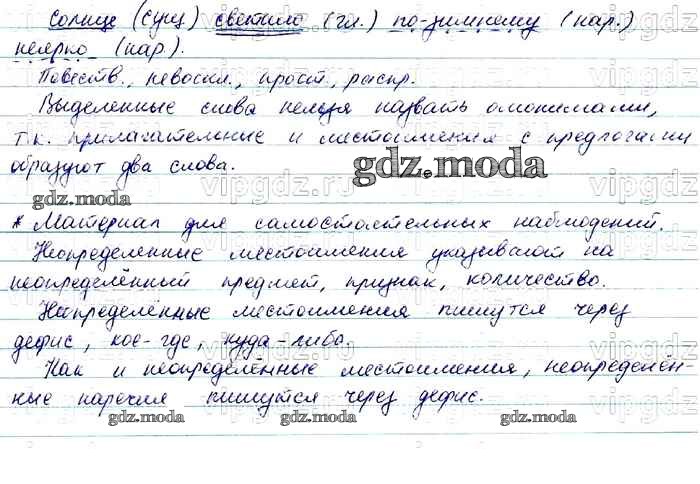 Солнце (сущ.) светило (гл.) по-зимнему (нар.)
неярко (нар.).
Повеств., невоскл., прост., распр.
Выделенные слова нельзя назвать омонимами,
т.к. прилагательные и местоимения с предлогами
образуют два слова.
gdz.moda
gdz.moda
* Материал для самостоятельных наблюдений.
Неопределенные местоимения указывают на
неопределённый предмет, признак, количество.
Неопределённые местоимения пишутся через
дефис, кое-где, куда-либо.
Как и неопределённые местоимения, неопределён-
ные наречия пишутся через дефис.
gdz.moda gdz.moda gdz.moda